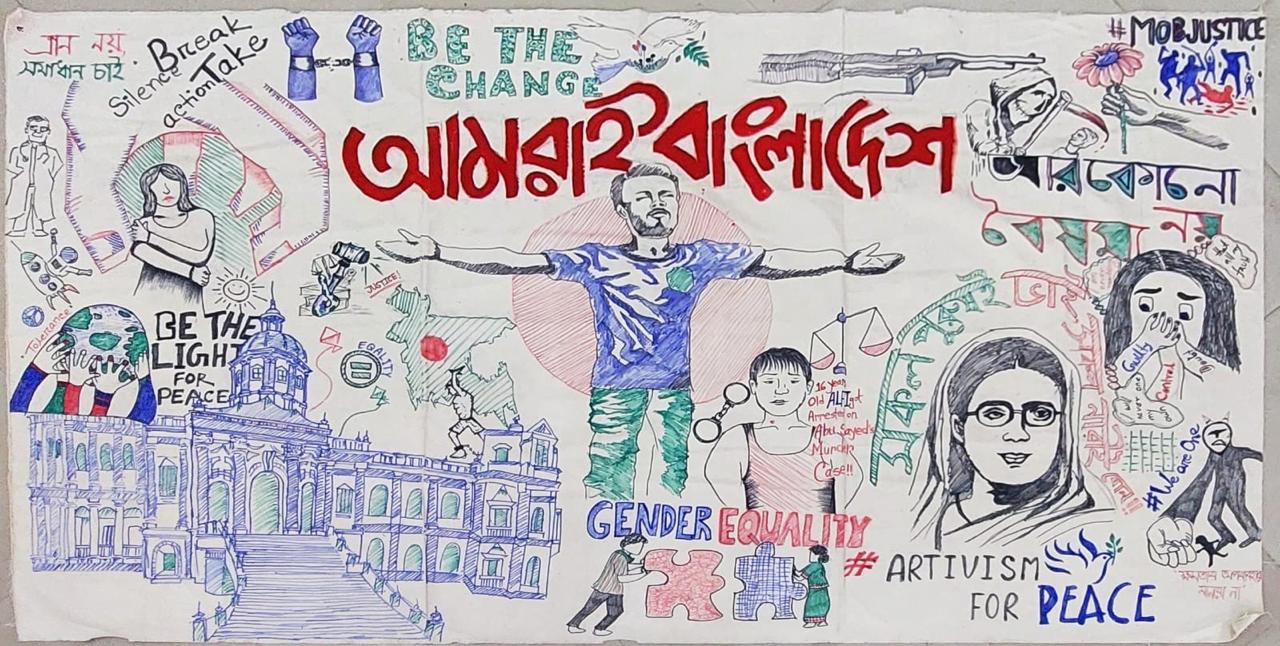 ত্রান নয়,
সমাধান চাই.
Break
Silence
Take
action
BE THE
CHANGE
#MOBJUSTICE
আমরাই বাংলাদেশ
আর কোনো
বৈষম্য নয়
JUSTICE!
Tolerance
BE THE
LIGHT
FOR
PEACE
EQALITY
16 year
Old ALFI got
Arrested on
Abu Sayed's
Murder
Case!!
সকল ধর্মই
Guilty
Control
#We are One
GENDER EQUALITY
# ARTIVISM
FOR PEACE